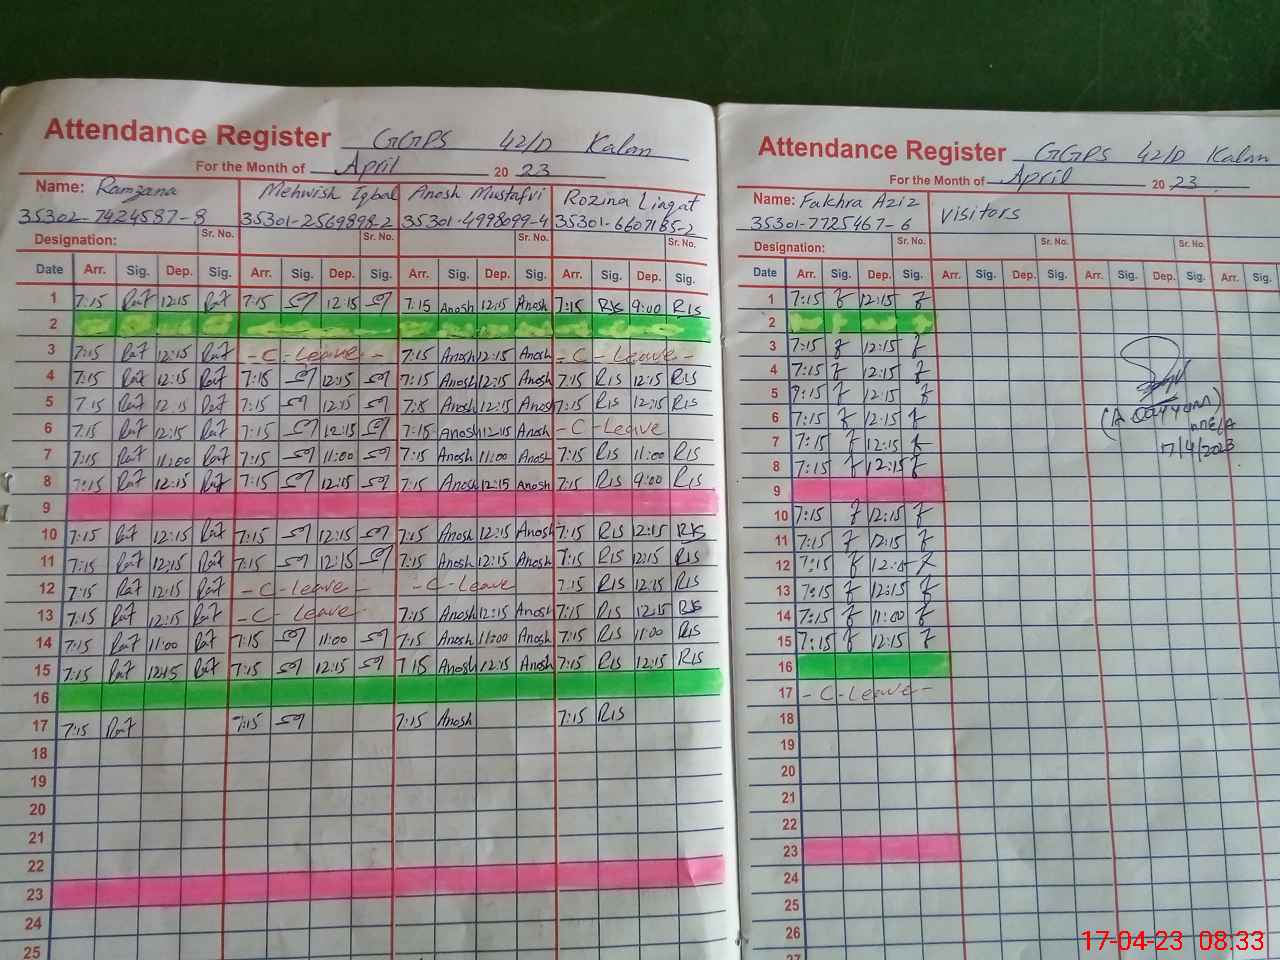 Attendance Register GGPS 42/D Kalan
For the Month of April 2023
Name: Ramzana Mehwish Iqbal Anosh Mustafvi Rozina Liaqat
35302-7424587-8 35301-2569898-2 35301-4998099-4 35301-6607185-2
Designation: Sr. No. Sr. No. Sr. No. Sr. No.
Date Arr. Sig. Dep. Sig. Arr. Sig. Dep. Sig. Arr. Sig. Dep. Sig. Arr. Sig. Dep. Sig.
1 7:15 12:15 7:15 12:15 7:15 Anosh 12:15 Anosh 7:15 RIS 9:00 RIS
2
3 7:15 12:15 -C-Leave- 7:15 Anosh 12:15 Anosh -C-Leave-
4 7:15 12:15 7:15 12:15 7:15 Anosh 12:15 Anosh 7:15 RIS 12:15 RIS
5 7:15 12:15 7:15 12:15 7:15 Anosh 12:15 Anosh 7:15 RIS 12:15 RIS
6 7:15 12:15 7:15 12:15 7:15 Anosh 12:15 Anosh -C-Leave
7 7:15 11:00 7:15 11:00 7:15 Anosh 11:00 Anosh 7:15 RIS 11:00 RIS
8 7:15 12:15 7:15 12:15 7:15 Anosh 12:15 Anosh 7:15 RIS 9:00 RIS
9
10 7:15 12:15 7:15 12:15 7:15 Anosh 12:15 Anosh 7:15 RIS 12:15 RIS
11 7:15 12:15 7:15 12:15 7:15 Anosh 12:15 Anosh 7:15 RIS 12:15 RIS
12 7:15 12:15 -C-Leave- -C-Leave 7:15 RIS 12:15 RIS
13 7:15 12:15 -C-Leave- 7:15 Anosh 12:15 Anosh 7:15 RIS 12:15 RIS
14 7:15 11:00 7:15 11:00 7:15 Anosh 11:00 Anosh 7:15 RIS 11:00 RIS
15 7:15 12:15 7:15 12:15 7:15 Anosh 12:15 Anosh 7:15 RIS 12:15 RIS
16
17 7:15 7:15 7:15 Anosh 7:15 RIS
18
19
20
21
22
23
24
25
Attendance Register GGPS 42/D Kalan
For the Month of April 2023
Name: Fakhra Aziz visitors
35301-7725467-6
Designation: Sr. No. Sr. No.
Date Arr. Sig. Dep. Sig. Arr. Sig. Dep. Sig. Arr. Sig. Dep. Sig. Arr. Sig.
1 7:15 12:15
2
3 7:15 12:15
4 7:15 12:15
5 7:15 12:15
6 7:15 12:15
7 7:15 12:15
8 7:15 12:15
9
10 7:15 12:15
11 7:15 12:15
12 7:15 12:15
13 7:15 12:15
14 7:15 11:00
15 7:15 12:15
16
17 -C-Leave-
18
19
20
21
22
23
24
25
26
27
17/4/2023
17-04-23 08:33